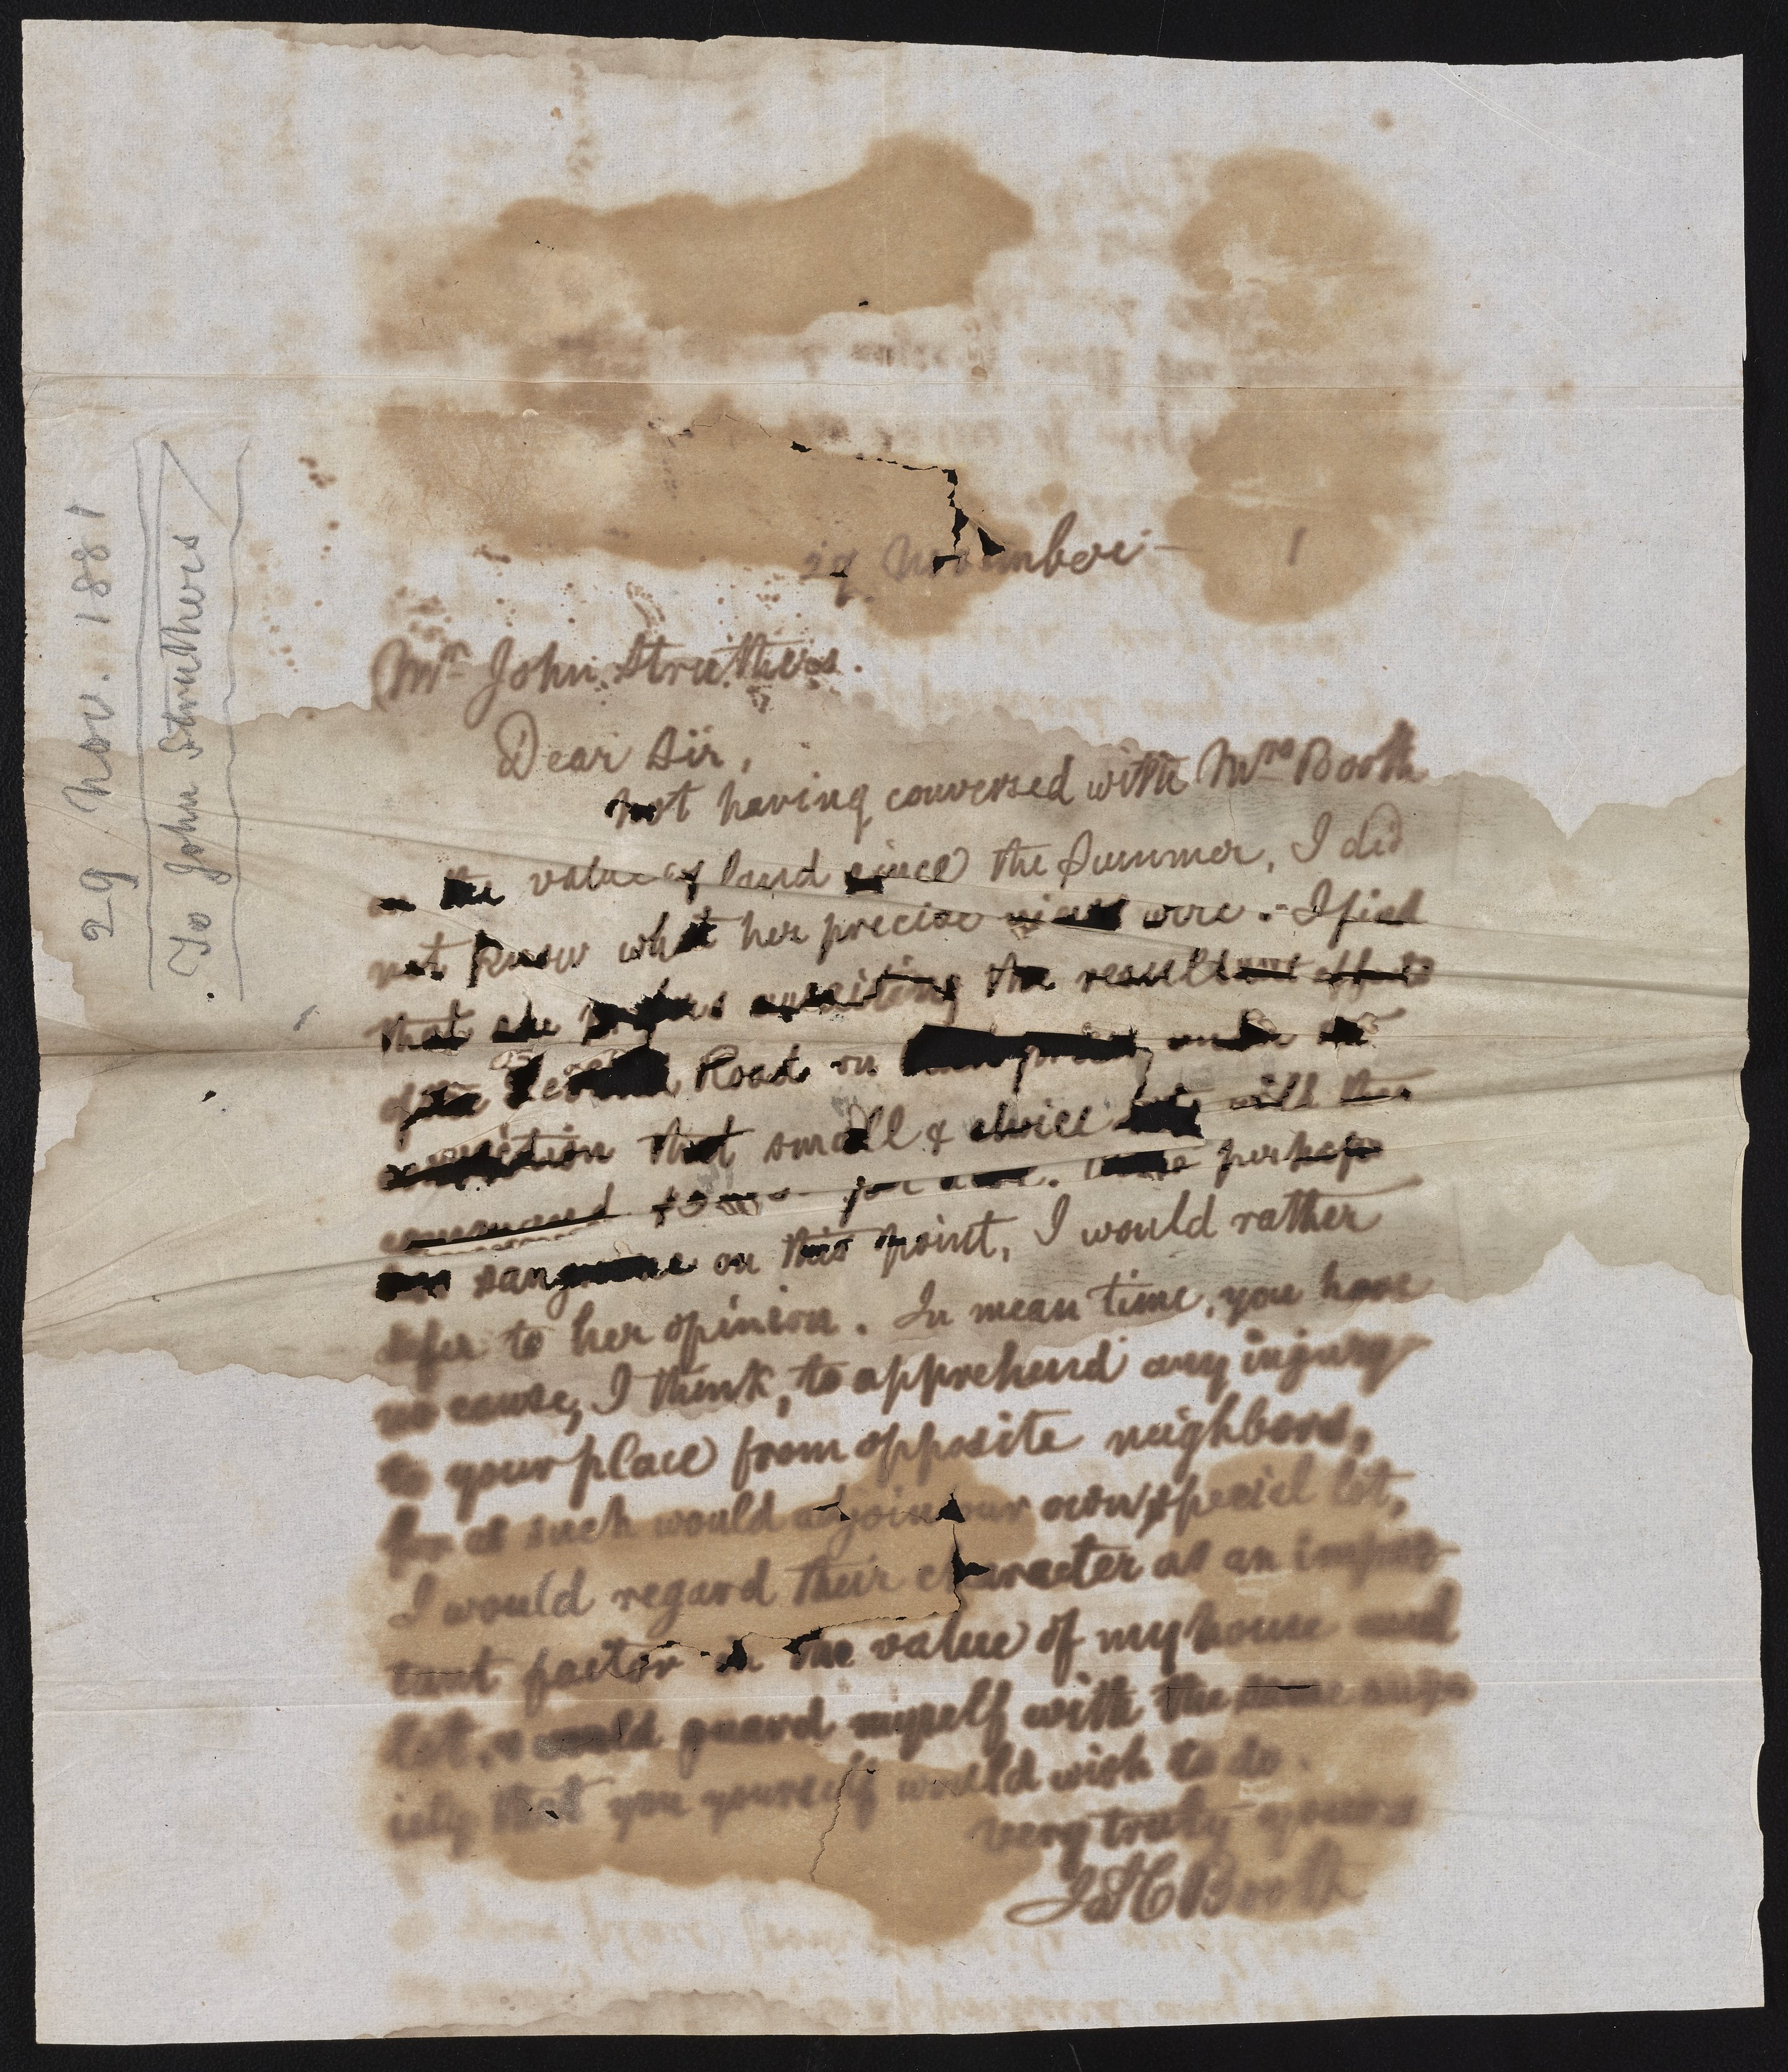 29 November — 1
Mr John Struthers.
Dear Sir,
Not having conversed with Mrs Booth
on the value of land since the Summer, I did
not know what her precise views were. I find
that she prefers awaiting the resultant effect
of the Road on
conviction that small & choice lots will then
command per acre. perhaps
too sanguine on this point, I would rather
defer to her opinion. In mean time, you have
no cause, I think, to apprehend any injury
to your place from opposite neighbors,
for as such would adjoin our own special lot,
I would regard their character as an impor-
tant factor in the value of my house and
lot, & would guard myself with the same anx-
iety that you yourself would wish to do.
very truly yours
Jas C Booth
29 Nov. 1881
To John Struthers